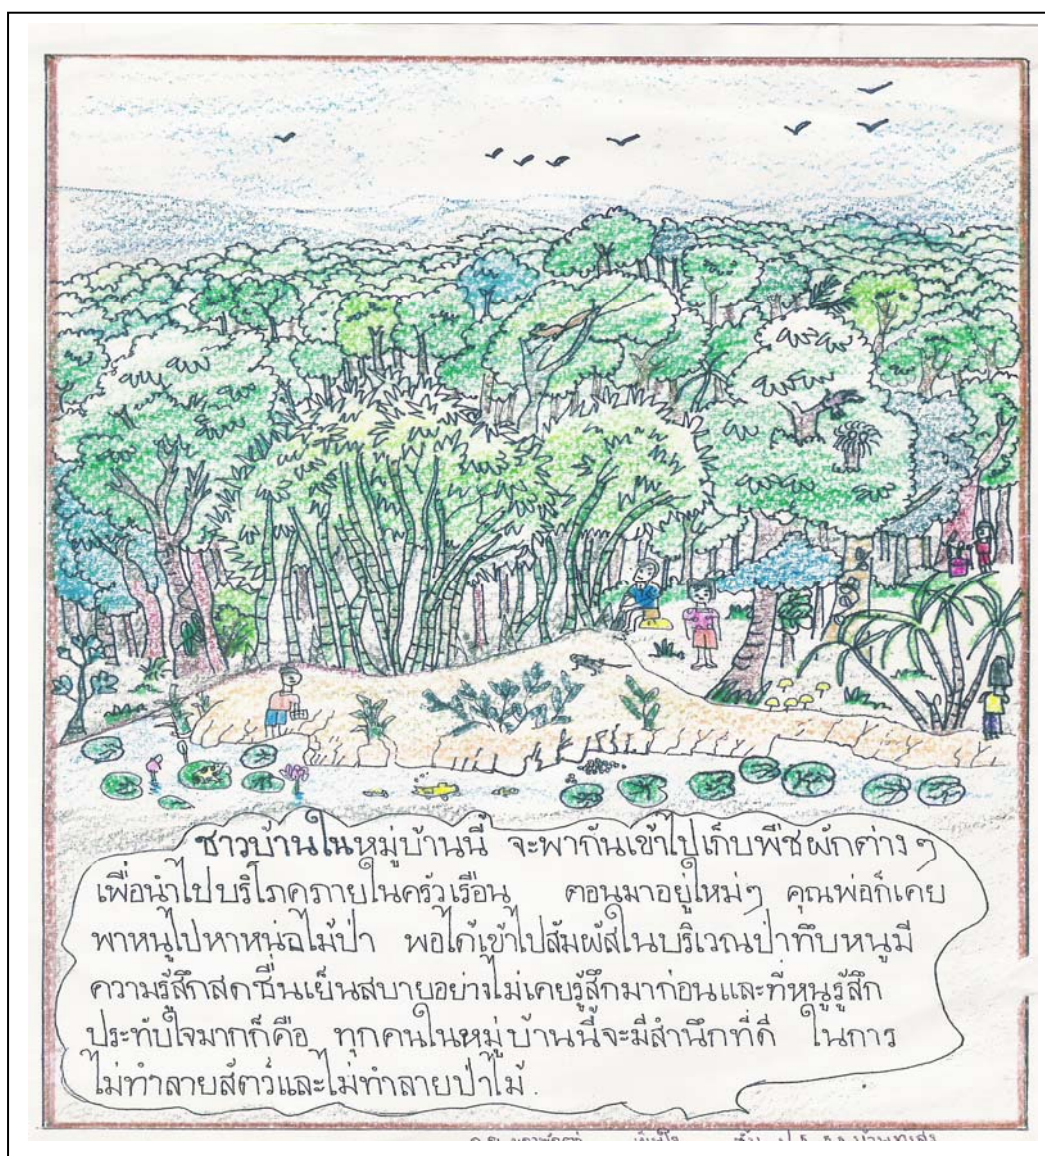 ชาวบ้านในหมู่บ้านนี้ จะพากันเข้าไปเก็บพืชผักต่างๆ
เพื่อนำไปบริโภคภายในครัวเรือน ตอนมาอยู่ใหม่ๆ คุณพ่อก็เคย
พาหนูไปหาหน่อไม้ป่า พอได้เข้าไปสัมผัสในบริเวณป่าทึบหนูมี
ความรู้สึกสดชื่นเย็นสบายอย่างไม่เคยรู้สึกมาก่อนและที่หนูรู้สึก
ประทับใจมากก็คือ ทุกคนในหมู่บ้านนี้จะมีสำนึกที่ดี ในการ
ไม่ทำลายสัตว์และไม่ทำลายป่าไม้.